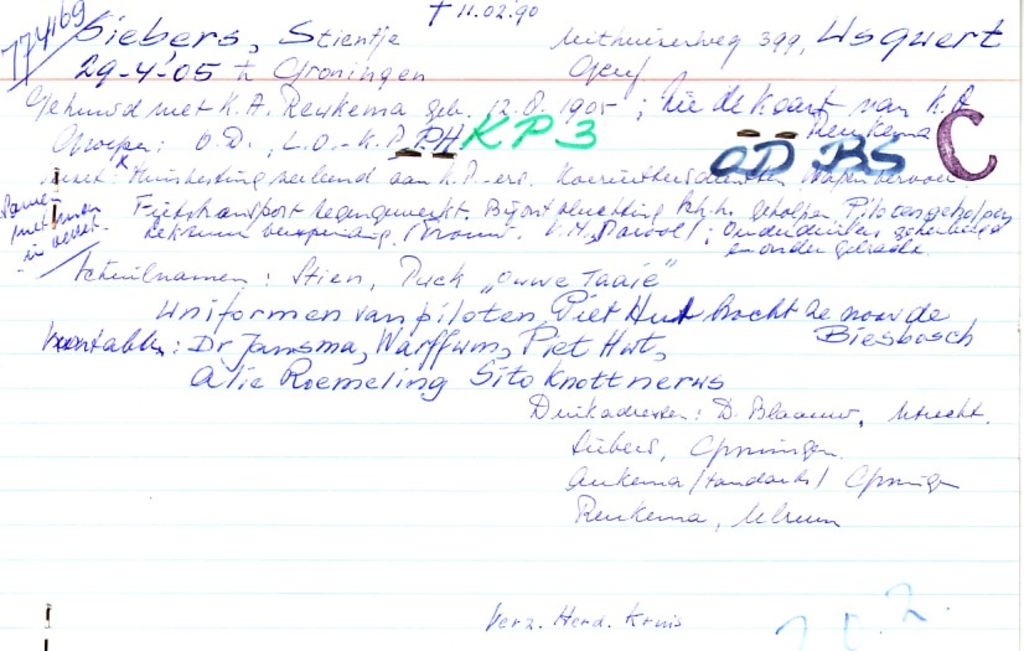 † 11.02.90
774169
Siebers, Stientje
Uithuizerweg 399, Usquert
29-4-05 te Groningen
Gron
Gehuwd met K.A. Reukema geb. 12.8.1905 ; zie de kaart van K.A. Reukema
Groepen: O.D., L.O.-K.P. PH KP 3
OD BS C
verzet: Huisvesting verleend aan K.P.-ers. Koerierstersdiensten Wapenvervoer
Samen met man in verzet.
Fietstransport tegengewerkt. Bij ontvluchting geholpen, Piloten geholpen
Onderduikers
Schuilnamen: Stien, Puck "Ouwe Taaie"
Uniformen van piloten, Piet Hut bracht ze naar de Biesbosch
kontakten: Dr Jansma, Warffum, Piet Hut,
Alie Roemeling Sito Knottnerus
Duikadressen: D. Blaauw, Utrecht.
Siebers, Groningen.
Aukema (tandarts) Groningen
Reukema, Ulrum
Verz. Herd. Kruis